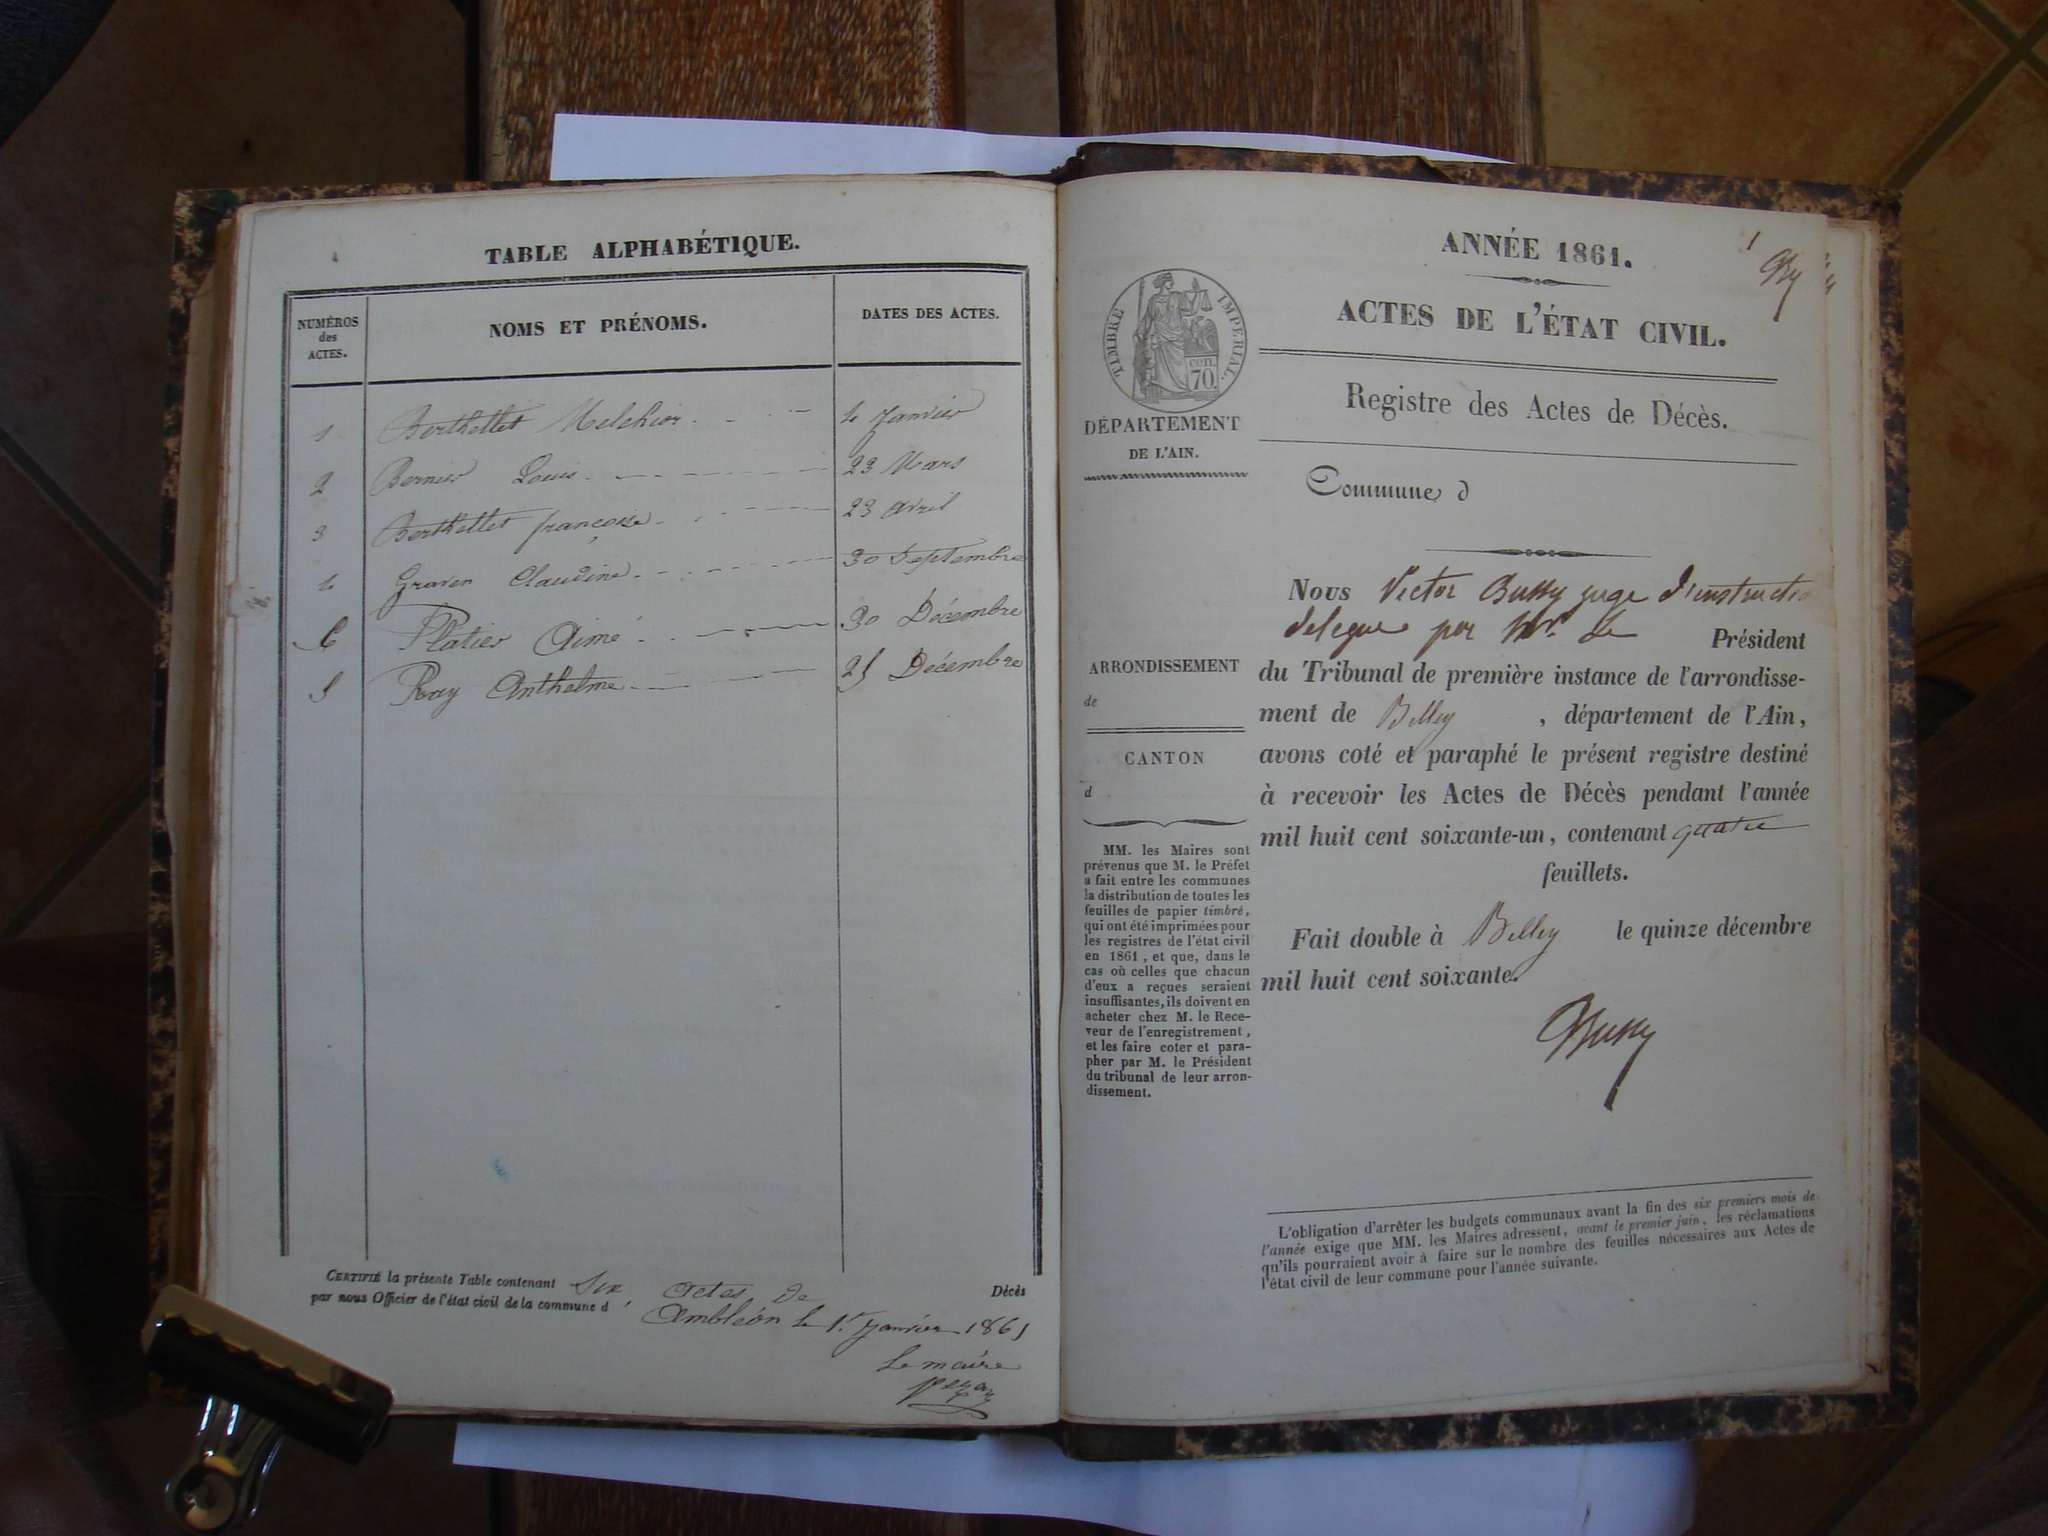 TABLE ALPHABÉTIQUE.
NUMÉROS
des
ACTES.
NOMS ET PRÉNOMS.
DATES DES ACTES.
1 Berthellet Melchior 4 Janvier
2 Bernier Louis 23 Mars
3 Berthellet françoise 23 avril
4 Graven Claudine 30 Septembre
6 Platier Aimé 30 Décembre
5 Roy Anthelme 25 Décembre
CERTIFIÉ la présente Table contenant Six actes de Décès
par nous Officier de l'état civil de la commune d'
Ambléon le 1er Janvier 1861
Le maire
ANNÉE 1861.
1
ACTES DE L'ÉTAT CIVIL.
TIMBRE IMPÉRIAL.
cen.
70
Registre des Actes de Décès.
DÉPARTEMENT
DE L'AIN.
Commune d
Nous Victor Bussy juge d'instructio
delegue par Mr. Le Président
du Tribunal de première instance de l'arrondisse-
ment de Belley, département de l'Ain,
avons coté et paraphé le présent registre destiné
à recevoir les Actes de Décès pendant l'année
mil huit cent soixante-un, contenant quatre
feuillets.
Fait double à Belley le quinze décembre
mil huit cent soixante.
Bussy
ARRONDISSEMENT
de
CANTON
d
MM. les Maires sont
prévenus que M. le Préfet
a fait entre les communes
la distribution de toutes les
feuilles de papier timbré,
qui ont été imprimées pour
les registres de l'état civil
en 1861, et que, dans le
cas où celles que chacun
d'eux a reçues seraient
insuffisantes, ils doivent en
acheter chez M. le Rece-
veur de l'enregistrement,
et les faire coter et para-
pher par M. le Président
du tribunal de leur arron-
dissement.
L'obligation d'arrêter les budgets communaux avant la fin des six premiers mois de
l'année exige que MM. les Maires adressent, avant le premier juin, les réclamations
qu'ils pourraient avoir à faire sur le nombre des feuilles nécessaires aux Actes de
l'état civil de leur commune pour l'année suivante.